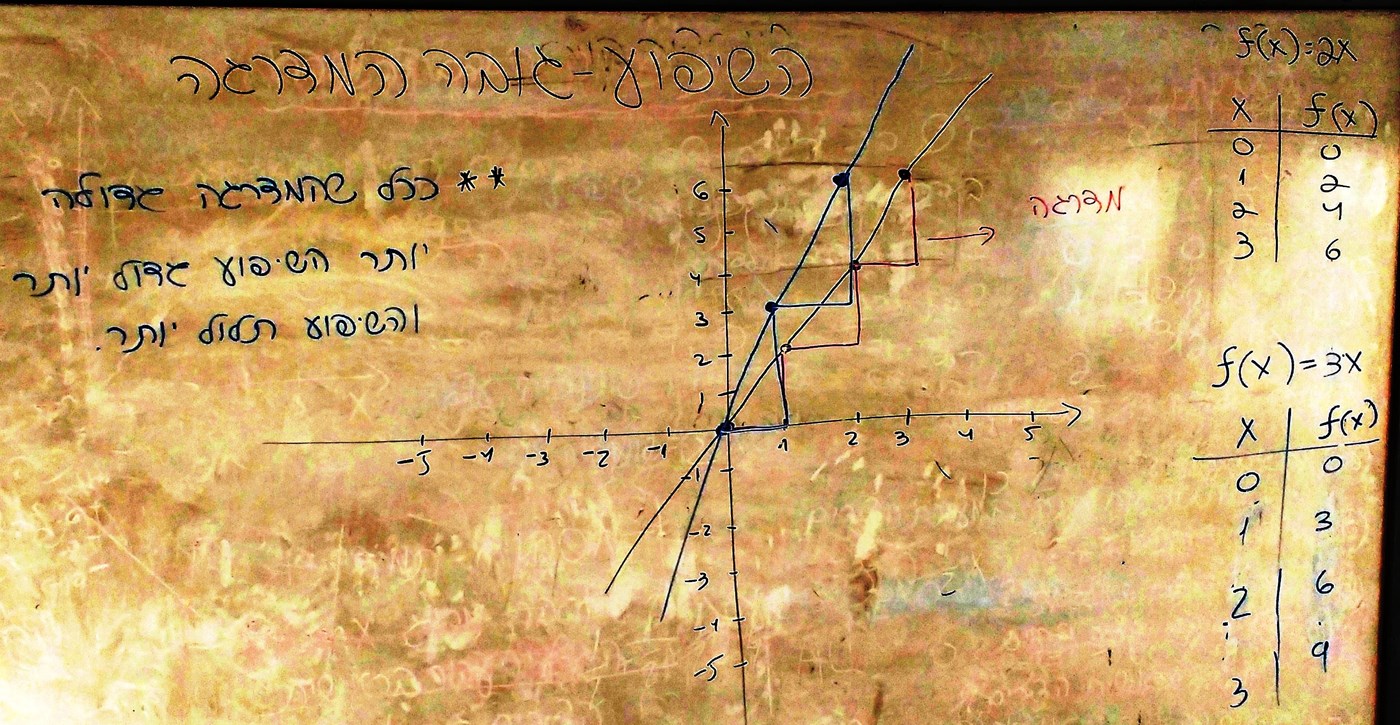 השיפוע-גובה המדרגה
** ככל שהמדרגה גדולה
יותר השיפוע גדול יותר
והשיפוע תלול יותר.
6
5
4
3
2
1
-5 -4 -3 -2 -1 1 2 3 4 5
-1
-2
-3
-4
-5
מדרגה
f(x)=2x
x f(x)
0 0
1 2
2 4
3 6
f(x)=3x
x f(x)
0 0
1 3
2 6
3 9